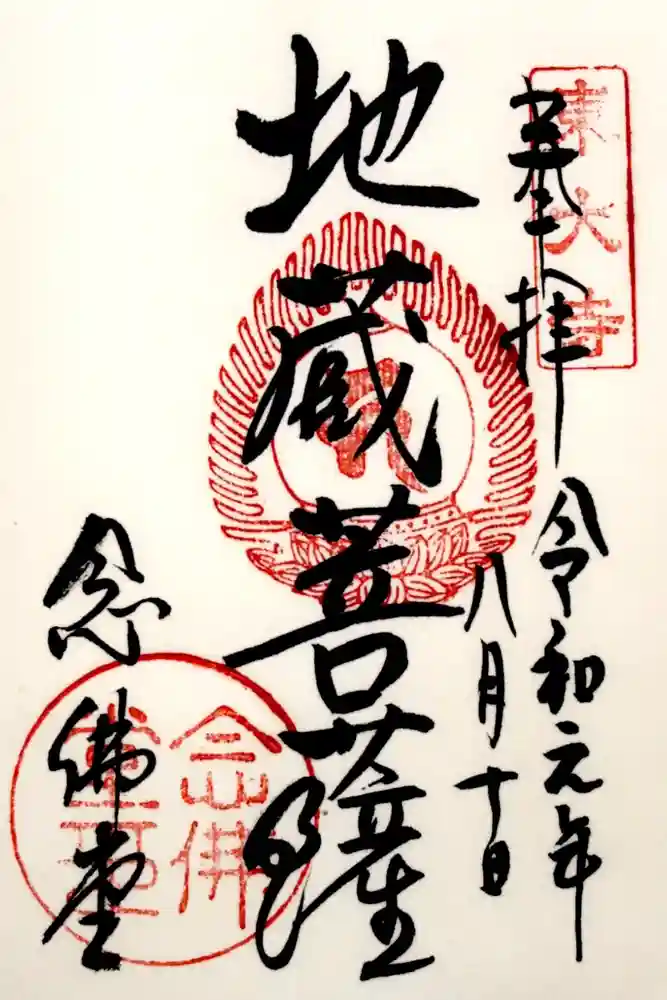 東大寺
奉拝
令和元年
八月十日
地蔵菩薩
念佛堂
念佛堂印